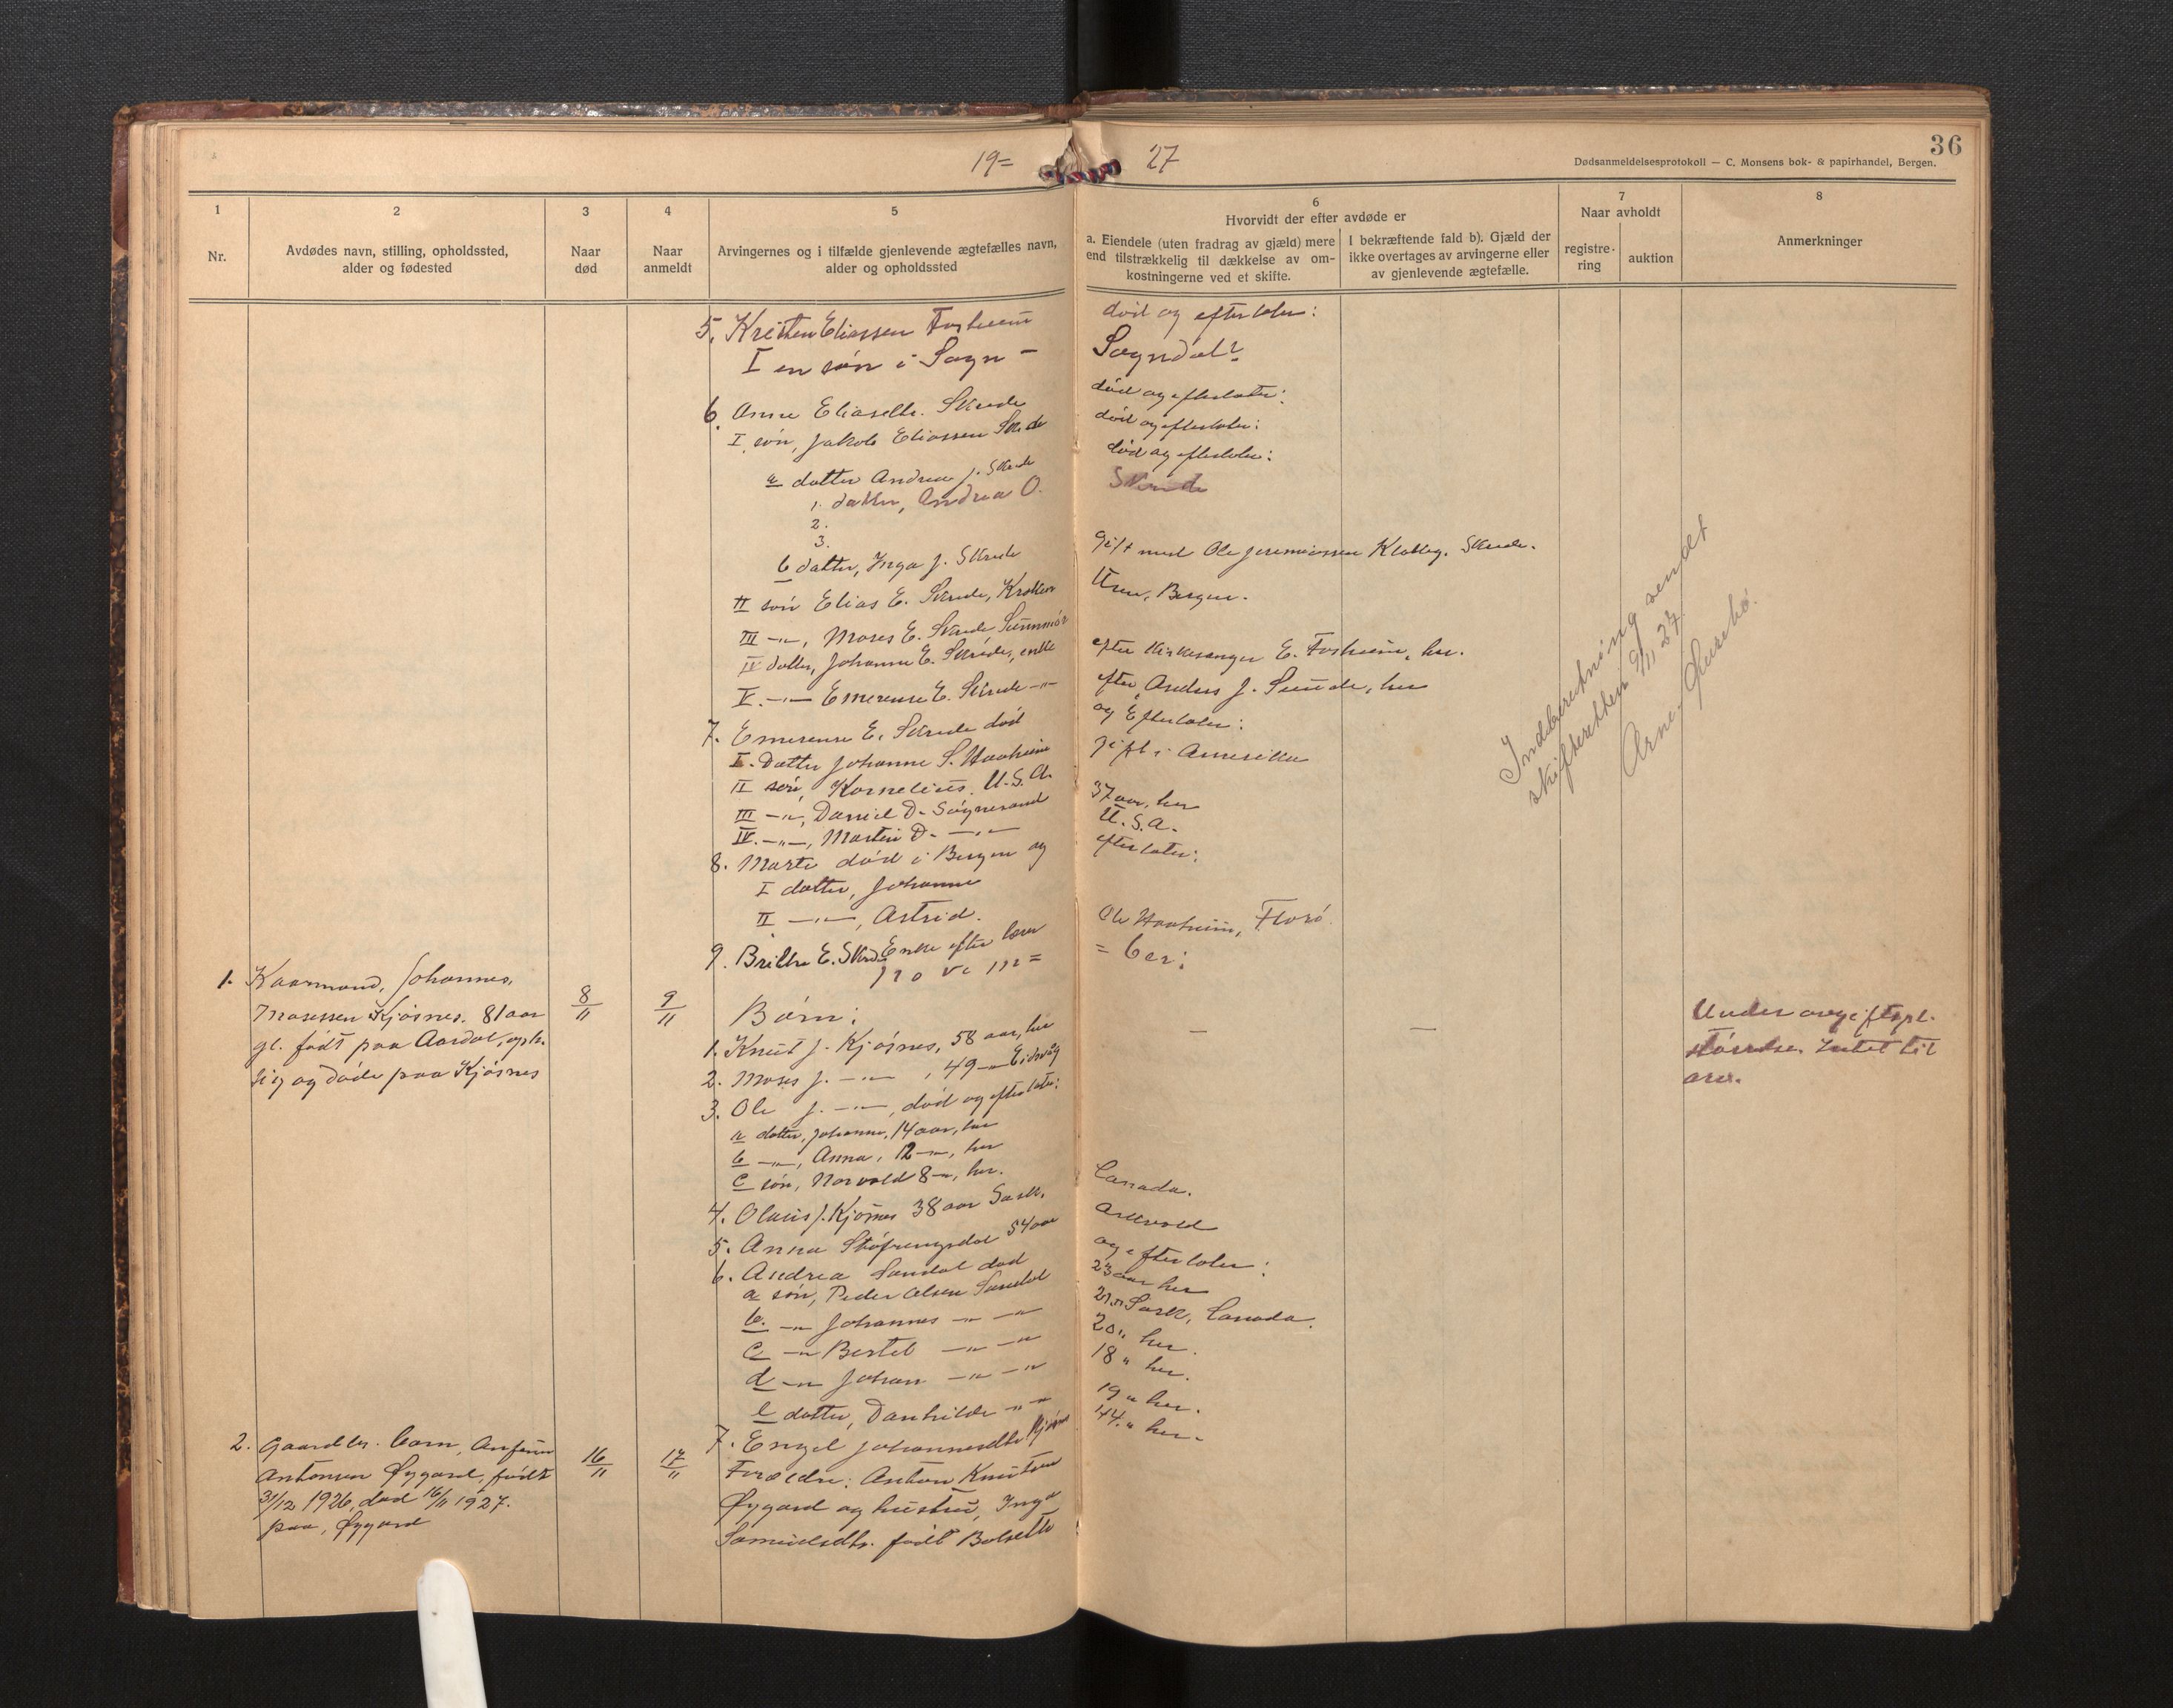 19= 27
36
Dødsanmeldelsesprotokoll — C. Monsens bok- & papirhandel, Bergen.
1 2 3 4 5 6 7 8
Nr.
Avdødes navn, stilling, opholdssted,
alder og fødested
Naar
død
Naar
anmeldt
Arvingernes og i tilfælde gjenlevende ægtefælles navn,
alder og opholdssted
Hvorvidt der efter avdøde er
a. Eiendele (uten fradrag av gjæld) mere
end tilstrækkelig til dækkelse av om-
kostningerne ved et skifte.
I bekræftende fald b). Gjæld der
ikke overtages av arvingerne eller
av gjenlevende ægtefælle.
Naar avholdt
registre-
ring
auktion
Anmerkninger
5. Kristen Eliassen Fosheim død og efterlater:
I en søn i Sogn - Sogndal?
6. Anne Eliasdtr. Skrede død og efterlater:
I. søn, Jakob Eliassen Skrede død og efterlater:
a datter Andrea J. Skrede død og efterlater:
1. datter, Andrea O. Skrede
2.
3.
b datter, Inga J. Skrede gift med Ole Jeremiassen Skrede.
II søn Elias E. Skrede, Bergen.
III -"-, Moses E. Skrede Sunnmør
IV datter, Johanne E. Skrede, enke efter Kirkesanger E. Fosheim, her.
V. -"- Emerense E. Skrede -"- efter Anders J. Sunde, her
7. Emerense E. Skrede død og Efterlater:
I. Datter Johanne S. Haaheim gift i Amerika
II søn, Kornelius. U.S.A.
III -"-, Daniel D. Søgnesand 37 aar, her
IV. -"-, Martin D. -"- U.S.A.
8. Marte død i Bergen og efterlater:
I datter, Johanne
II -"-, Astrid.
9. Brithe E. Skrede Enke efter Ole Haaheim, Florø.
= ber:
1. Kaarmand, Johannes,
Mosessen Kjøsnes. 81 aar
gl. født paa Aardal, oph.
sig og døde paa Kjøsnes
8/11
9/11
Børn:
— —
1. Knut J. Kjøsnes, 58 aar, her
2. Moses J. -"-, 49 -"- Eidsvåg
3. Ole J. -"-, død og efterlater:
a datter, Johanne, 14 aar, her
b -"-, Anna, 12 -"-, her
c søn, Norvald 8 -"-, her.
4. Olaus J. Kjøsnes 38 aar Sask. Canada.
5. Anna 54 aar Askvold
6. Andrea Sandal død og efterlater:
a søn, Peder Olsen Sandal 23 aar her
b. -"- Johannes -"- -"- 21 " Sask, Canada.
c -"- Bertel -"- -"- 20 " her.
d -"- Johan -"- -"- 18 " her.
e datter, Danhilde " " 19 " her.
7. Engel Johannesdtr Kjøsnes 44. " her.
Under avgiftspl.
størrelse. Intet til
arv.
Indberetning sendt
skifteretten 9/11 27.
2. Gaardbr. barn, Anfinn
Antonsen Øygard, født
31/12 1926, død 16/11 1927.
paa, Øygard
16/11
17/11
Foreldre: Anton Knutsen
Øygard og hustru, Inga
Samuelsdtr. født Bolsette